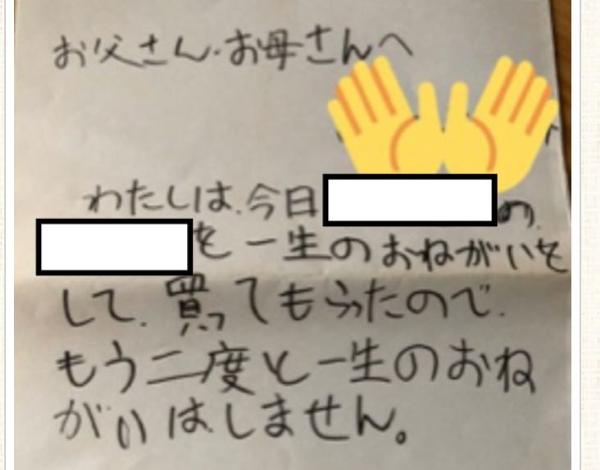 お父さん.お母さんへ
わたしは.今日 の.
を一生のおねがいを
して.買ってもらったので.
もう二度と一生のおね
がいはしません。